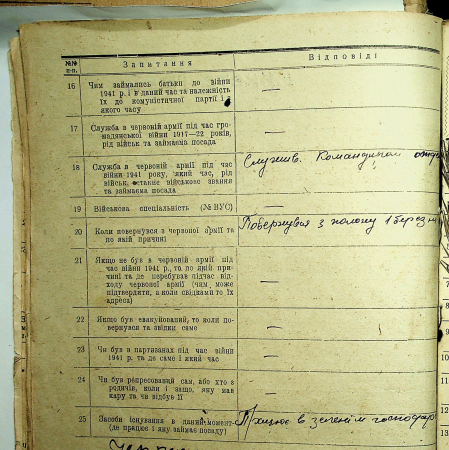 №№ п-п. Запитання Відповіді
16 Чим займались батьки до війни
1941 р. і в даний час та належність
їх до комуністичної партії і з
якого часу —
17 Служба в червоній армії під час гро-
мадянської війни 1917—22 років,
рід військ та займаєма посада —
18 Служба в червоній армії під час
війни 1941 року, який час, рід
військ, останнє військове звання
та займаєма посада
Служив. Командиром
19 Військова спеціяльність (№ ВУС) —
20 Коли повернувся з червоної армії та
по якій причині
Повернувся з полону 1 березня
21 Якщо не був в червоній армії під
час війни 1941 р., то, по якій при-
чині та де перебував підчас від-
ходу червоної армії (чим, може
підтвердити, а коли свідками то їх
адреса) —
22 Якщо був евакуйований, то коли по-
вернувся та звідки саме —
23 Чи був в партизанах під час війни
1941 р. та де саме і який час —
24 Чи був репресований сам, або хто з
родичів, коли і защо, яку мав
кару та чи відбув її —
25 Засоби існування в даний момент
(де працює і яку займає посаду)
Працює в
7
8
9
10
11
12
13